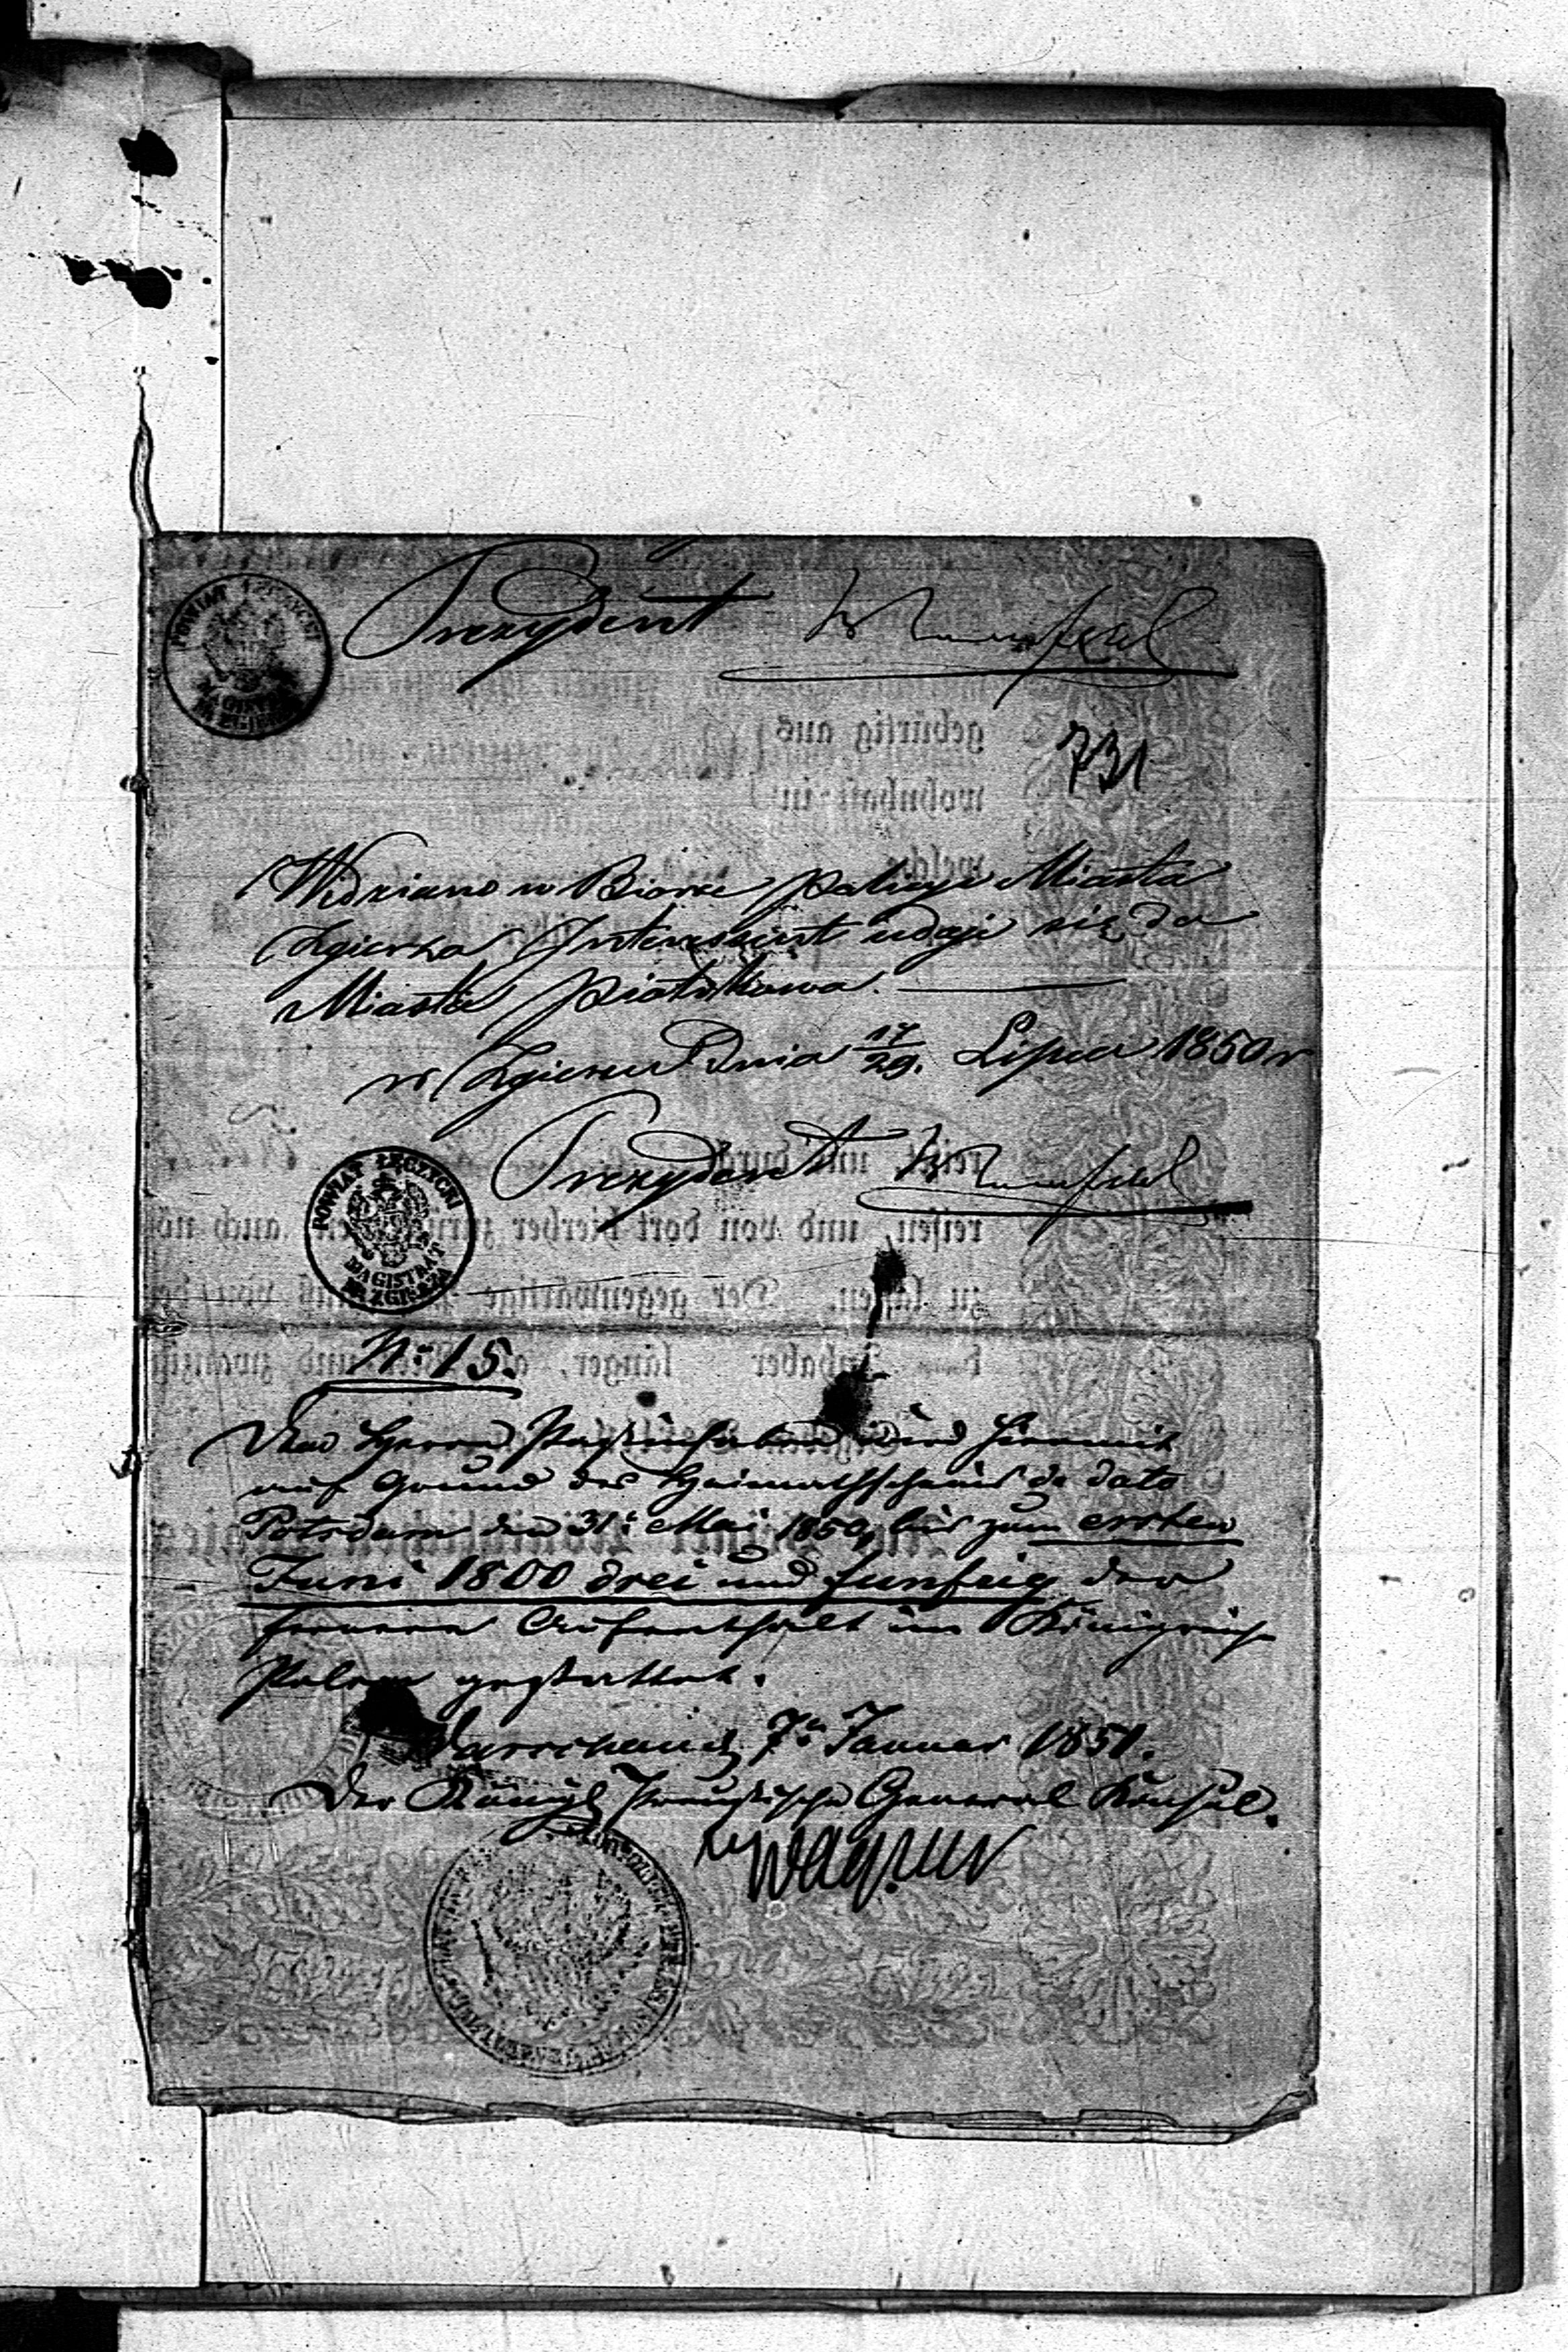 Prezydent
POWIAT ŁĘCZYCKI
MAGISTRAT
M. ZGIERZA
731
Widziano w Biorze Policyi Miasta
Zgierza Interessent udaje się do
Miasta Piotrkowa.
w Zgierzu Dnia 17/29. Lipca 1850 r
Prezydent
POWIAT ŁĘCZYCKI
MAGISTRAT
M. ZGIERZA
No 15.
Dem Herrn Paßinhaber wird hiermit
auf Grund des Heimathscheins de dato
Potsdam den 31t Mai 1850, bis zum ersten
Juni 1800 drei und funfzig der
fernere Aufenthalt im Königreich
Polen gestattet.
Warschau d. 7t Januar 1851.
Der Königl Preußische General Konsul.
Wagner
gebürtig aus
wohnhaft in
reiset und durch
reisen, und von dort hierher auch
zu lassen. Der gegenwärtige
Inhaber länger, und zwanzig